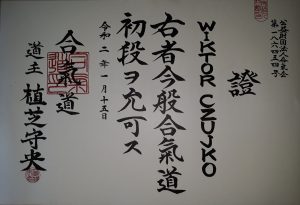 公益財団法人合気会
證
WIKTOR CZUJKO
右者今般合氣道
初段ヲ允可ス
令和二年一月十五日
合氣道
道主 植芝守央